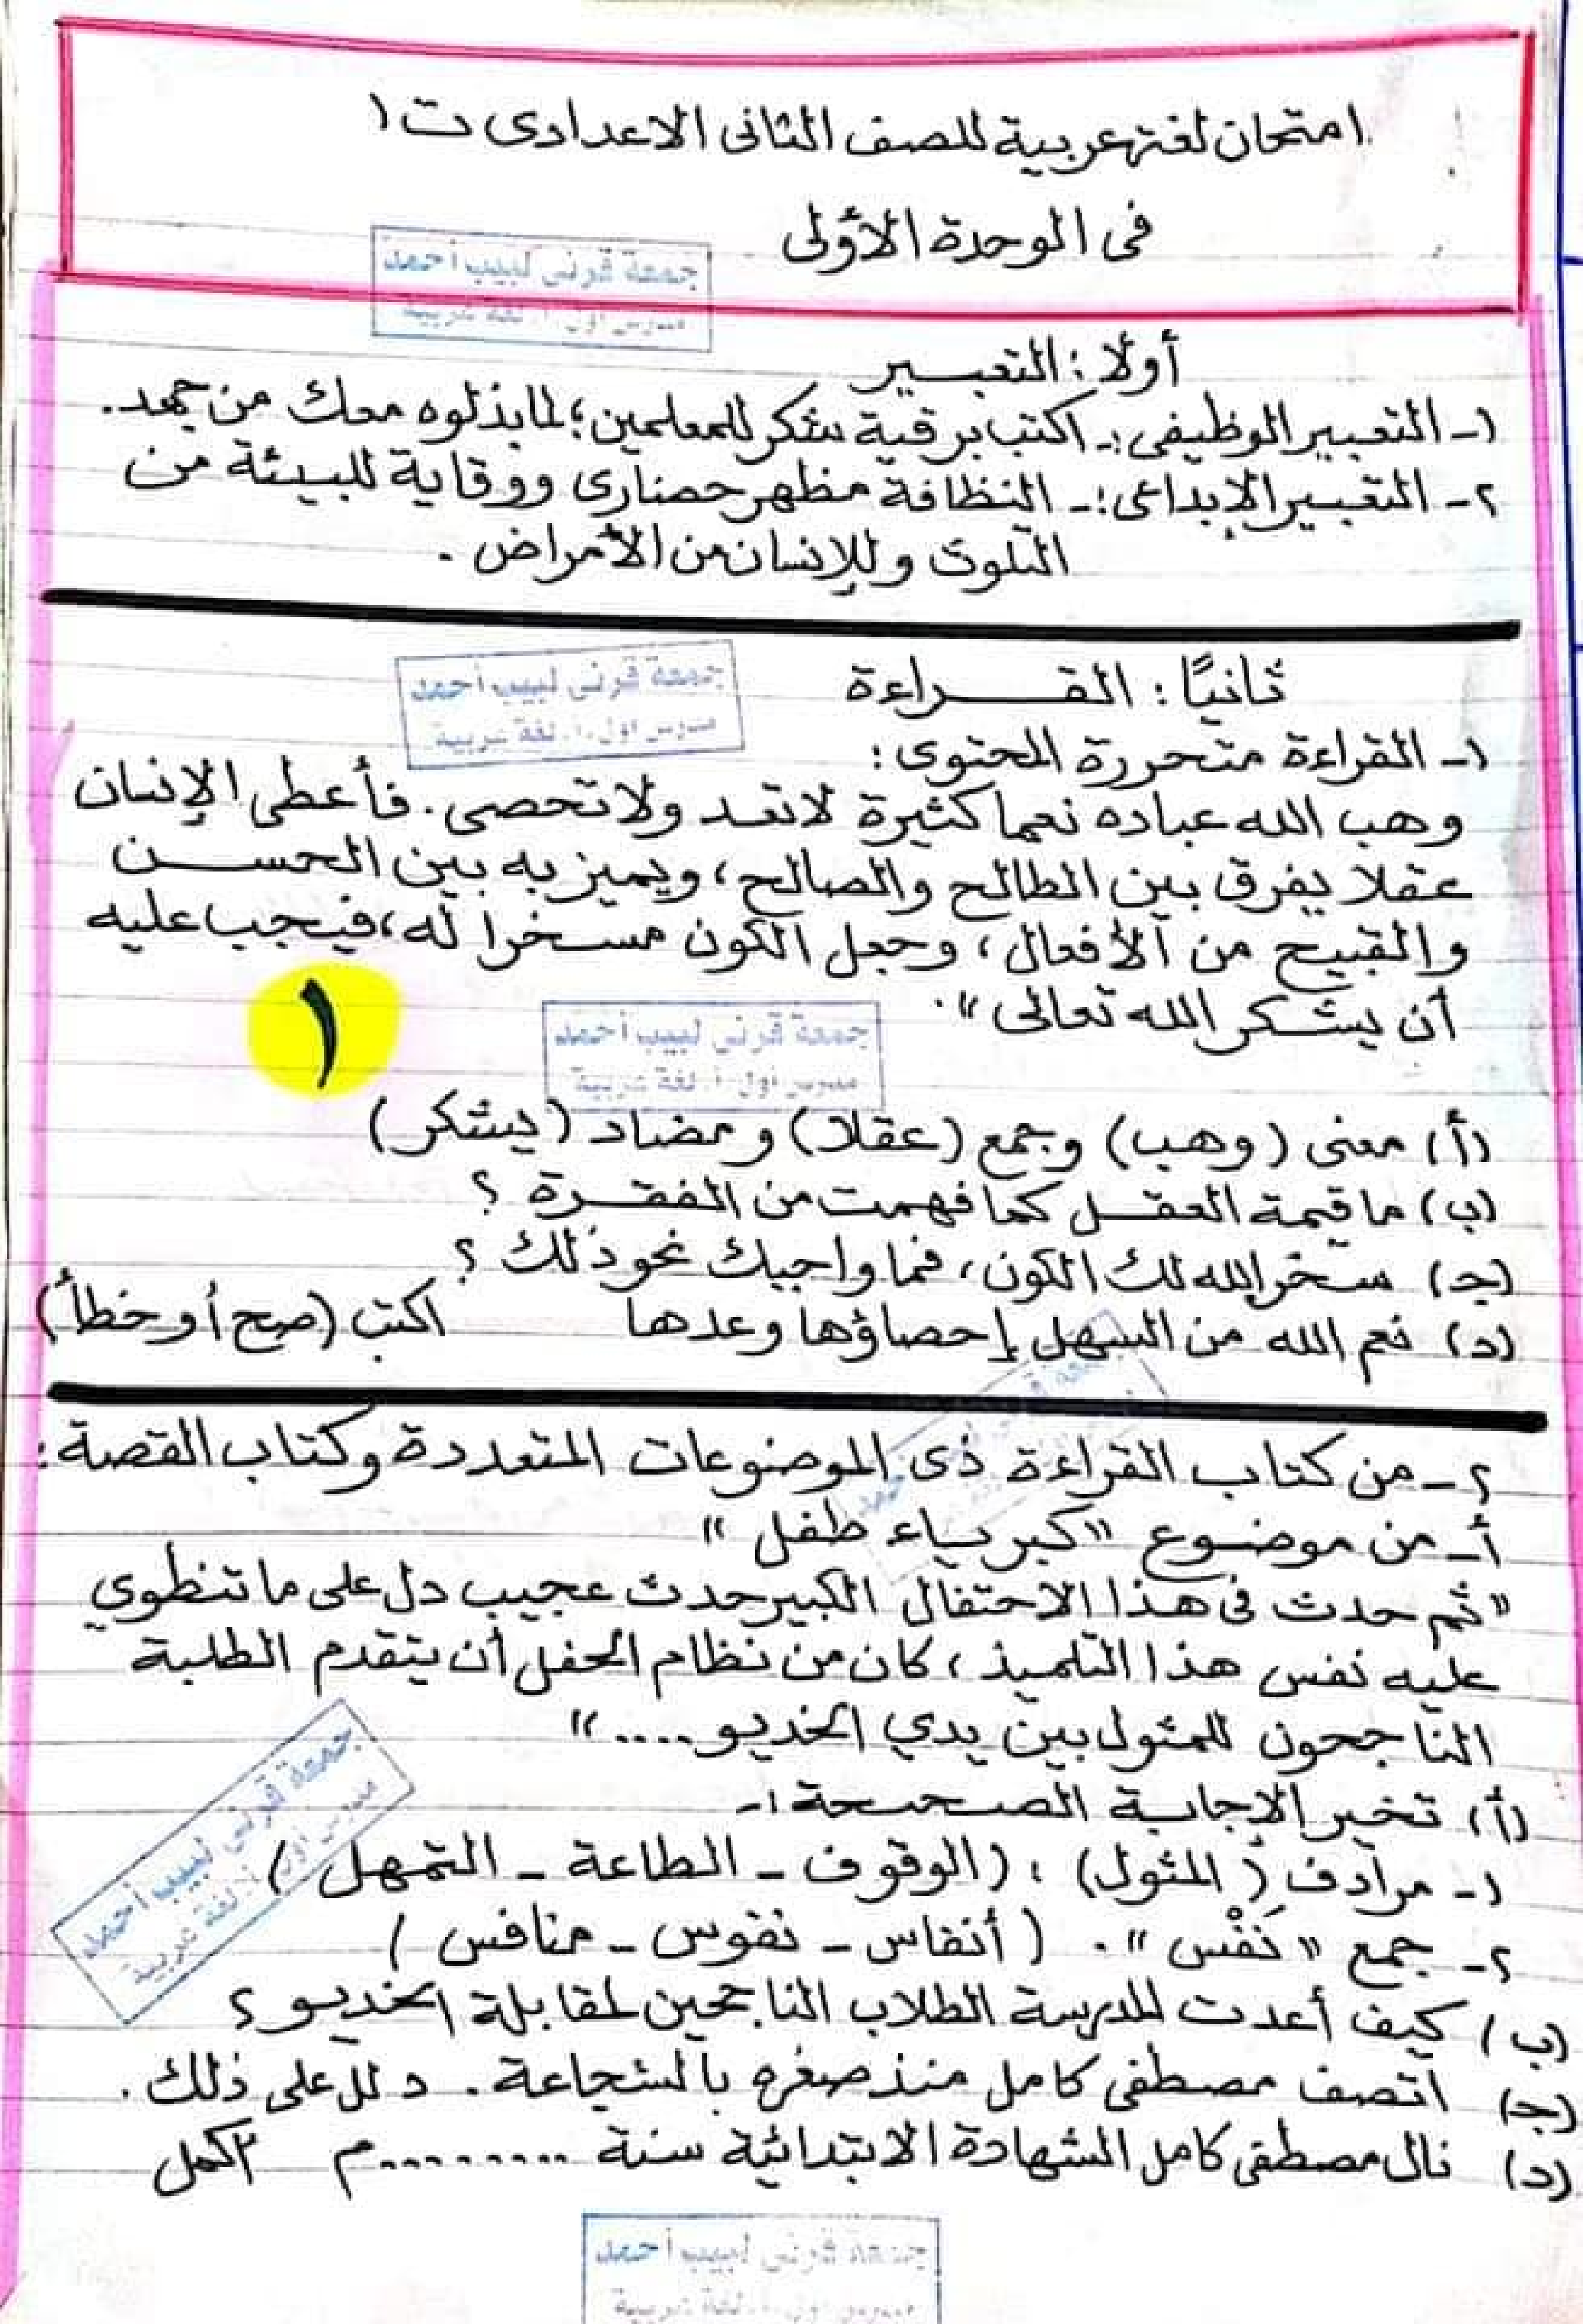 امتحان لغة عربية للصف الثانى الاعدادى ت١
فى الوحدة الأولى
جمعة قرنى لبيب أحمد
مدرس أول أ. لغة عربية
أولا : التعبير
١- التعبير الوظيفى :- اكتب برقية شكر للمعلمين ؛ لما بذلوه معك من جهد.
٢- التعبير الإبداعى :- النظافة مظهر حضارى ووقاية للبيئة من
التلوث وللإنسان من الأمراض .
ثانيًا : القراءة
جمعة قرنى لبيب أحمد
مدرس أول أ. لغة عربية
١- القراءة متحررة المحتوى :
وهب الله عباده نعما كثيرة لا تعد ولا تحصى . فأعطى الإنسان
عقلا يفرق بين الطالح والصالح ، ويميز به بين الحسن
والقبيح من الأفعال ، وجعل الكون مسخرا له ، فيجب عليه
أن يشكر الله تعالى " .
١
جمعة قرنى لبيب أحمد
مدرس أول أ. لغة عربية
(أ) معنى (وهب) وجمع (عقلا) ومضاد (يشكر)
(ب) ما قيمة العقل كما فهمت من الفقرة ؟
(ج) سخر الله لك الكون ، فما واجبك نحو ذلك ؟
(د) نعم الله من السهل إحصاؤها وعدها اكتب (صح أو خطأ)
٢- من كتاب القراءة ذى الموضوعات المتعددة وكتاب القصة :
أ- من موضوع "كبرياء طفل "
"ثم حدث فى هذا الاحتفال الكبير حدث عجيب دل على ما تنطوي
عليه نفس هذا التلميذ ، كان من نظام الحفل أن يتقدم الطلبة
الناجحون للمثول بين يدي الخديو .... "
(أ) تخير الإجابة الصحيحة :-
١- مرادف (المثول) : (الوقوف - الطاعة - التمهل )
٢- جمع "نَفْس" . ( أنفاس - نفوس - منافس )
جمعة قرنى لبيب أحمد
مدرس أول أ. لغة عربية
(ب) كيف أعدت المدرسة الطلاب الناجحين لمقابلة الخديو ؟
(ج) اتصف مصطفى كامل منذ صغره بالشجاعة . دلل على ذلك .
(د) نال مصطفى كامل الشهادة الابتدائية سنة ......... م أكمل
جمعة قرنى لبيب أحمد
مدرس أول أ. لغة عربية